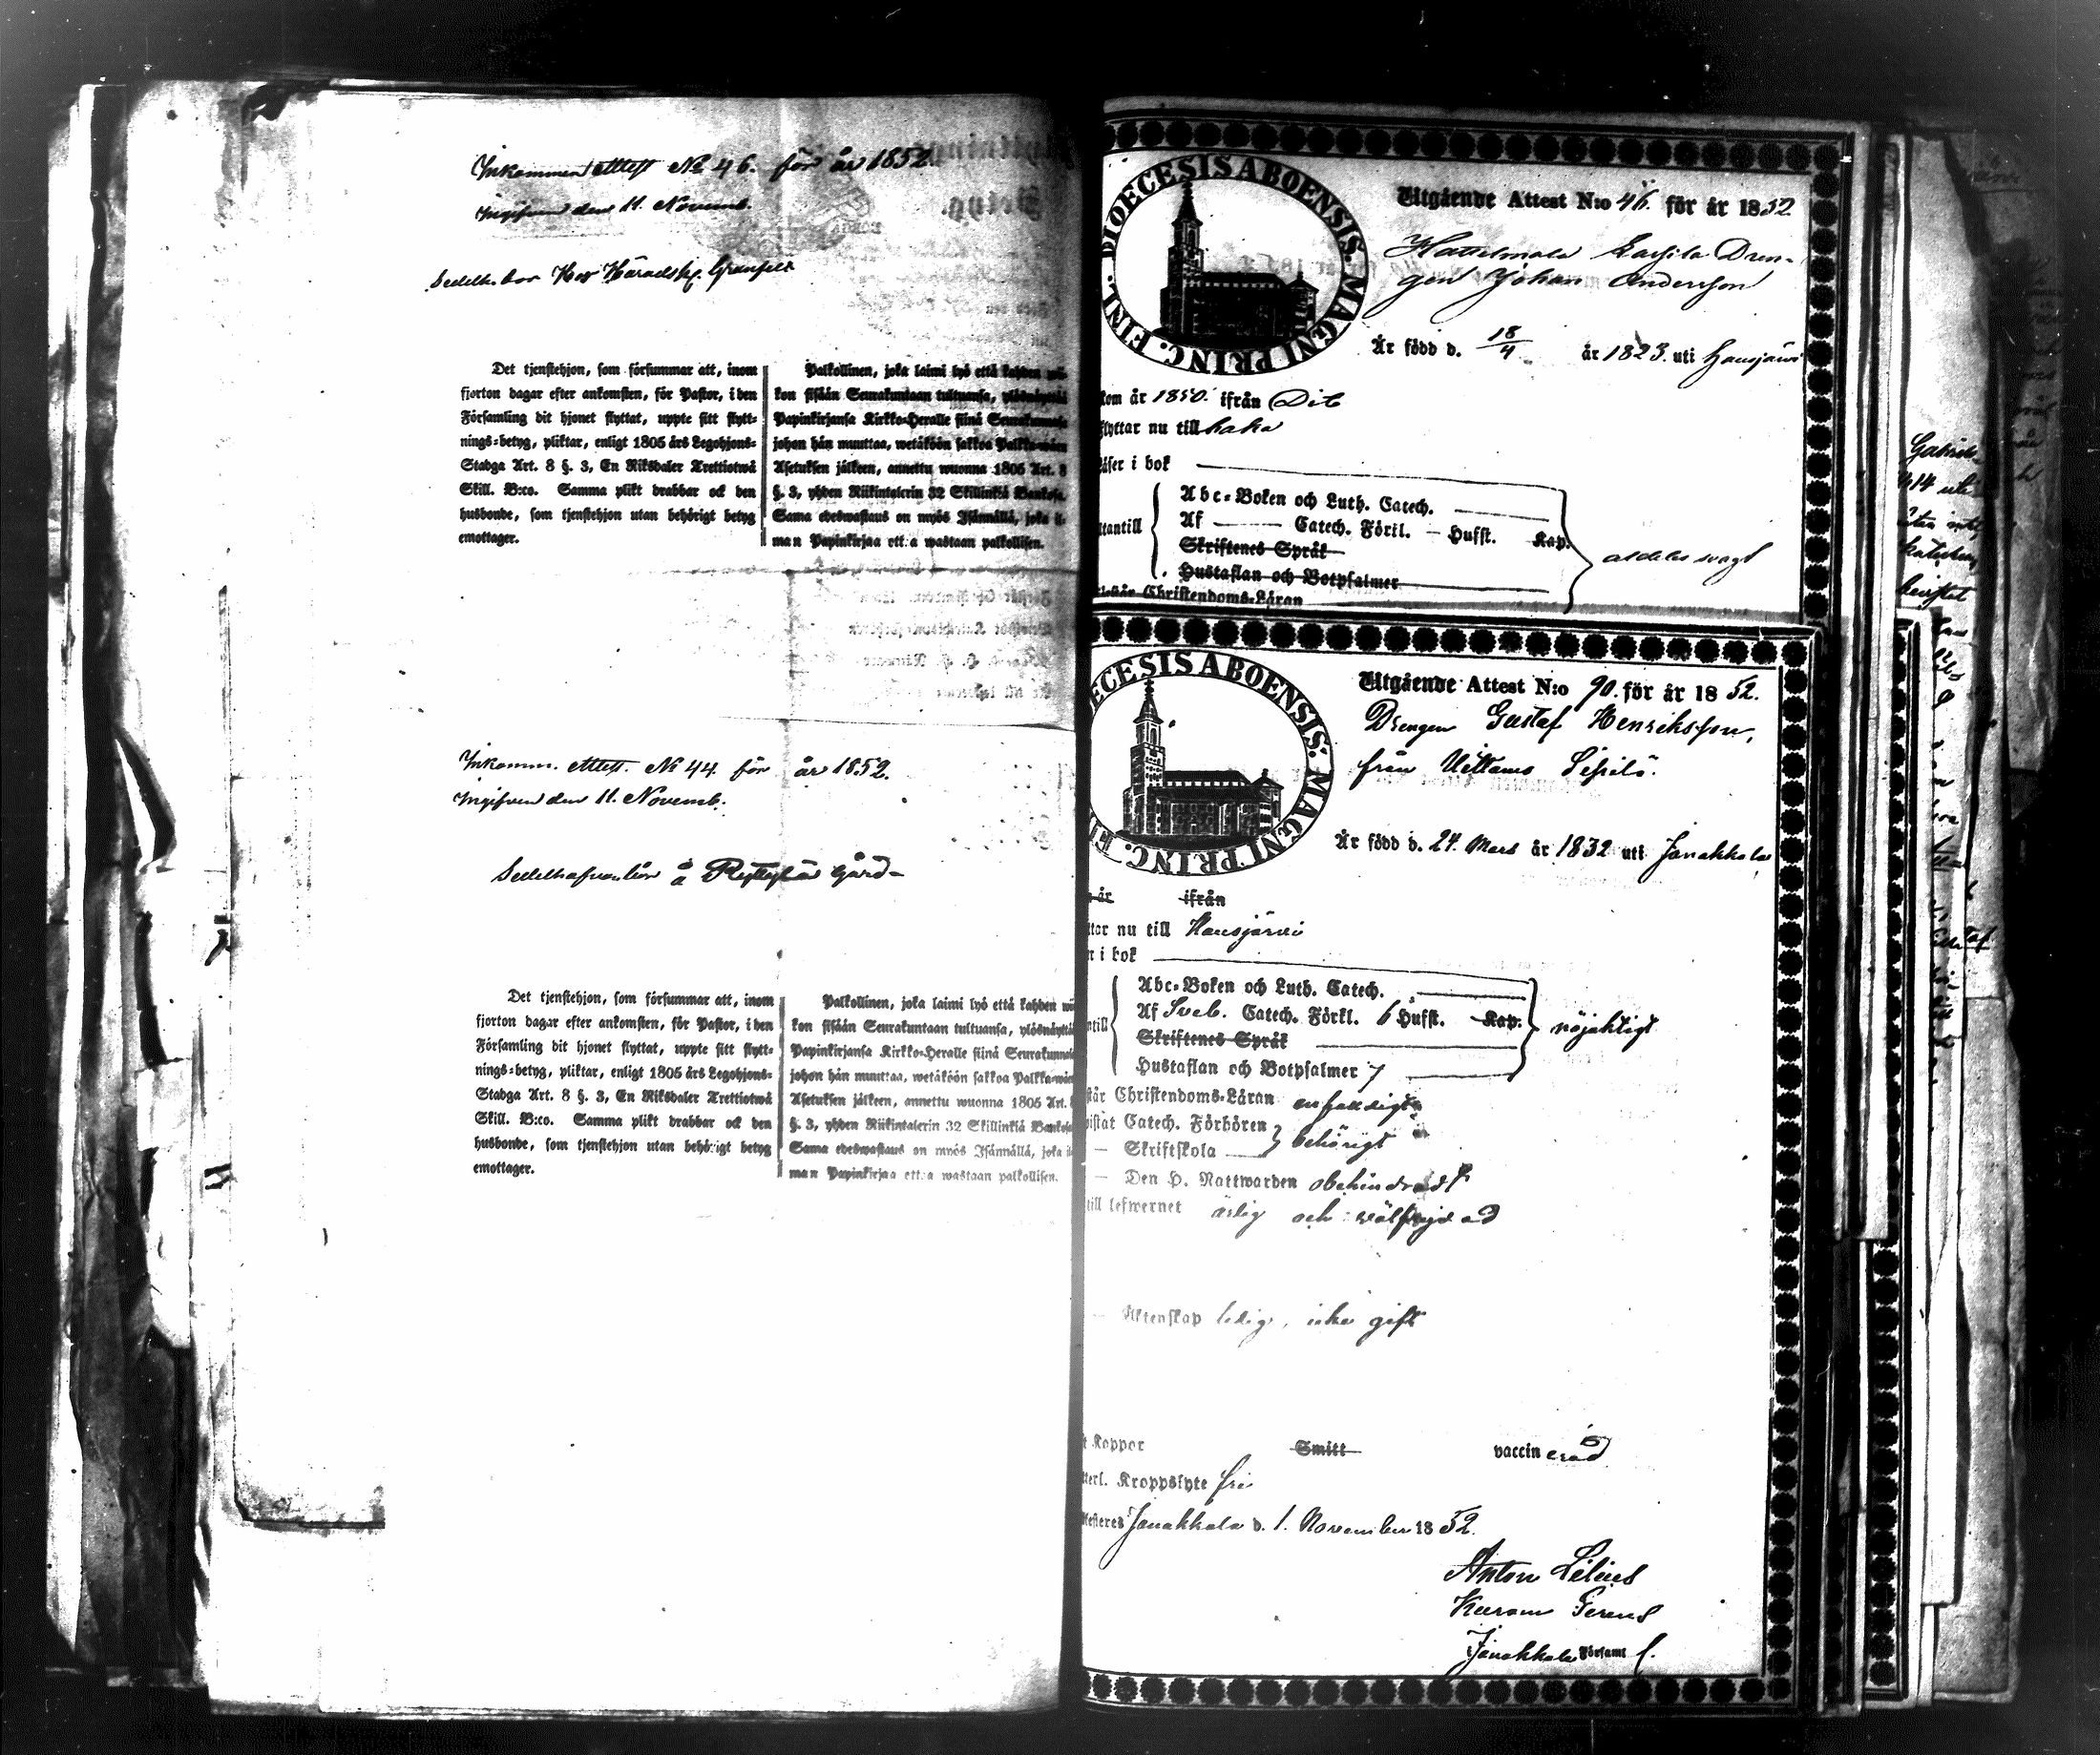 Inkommen Attest No 46. för år 1852.
Ingifven den 11. Novemb.
Det tjenstehjon, som försummar att, inom
fjorton dagar efter ankomsten, för Pastor, i den
Församling dit hjonet flyttat, uppte sitt flytt-
nings-betyg, pliktar, enligt 1805 års Legohjons-
Stadga Art. 8 §. 3, En Riksdaler Trettiotwå
Skill. B:co. Samma plikt drabbar ock den
husbonde, som tjenstehjon utan behörigt betyg
emottager.
Palkollinen, joka laimi lyö että kahden wii-
kon sisään Seurakuntaan tultuansa, ylösnäyttää
Papinkirjansa Kirkko-Heralle siinä Seurakunnasa
johon hän muuttaa, wetäköön sakkoa Palkka-wäen
Asetuksen jälkeen, annettu wuonna 1805 Art. 8
§. 3, yhden Riikintalerin 32 Skillinkiä Bankosa.
Sama edeswastaus on myös Isännällä, joka il-
man Papinkirjaa ottaa wastaan palkollisen.
Inkomm. Attest. No 44. för år 1852.
Ingifven den 11. Novemb.
Det tjenstehjon, som försummar att, inom
fjorton dagar efter ankomsten, för Pastor, i den
Församling dit hjonet flyttat, uppte sitt flytt-
nings-betyg, pliktar, enligt 1805 års Legohjons-
Stadga Art. 8 §. 3, En Riksdaler Trettiotwå
Skill. B:co. Samma plikt drabbar ock den
husbonde, som tjenstehjon utan behörigt betyg
emottager.
Palkollinen, joka laimi lyö että kahden wii
kon sisään Seurakuntaan tultuansa, ylösnäyttää
Papinkirjansa Kirkko-Heralle siinä Seurakunnasa
johon hän muuttaa, wetäköön sakkoa Palkka-wäen
Asetuksen jälkeen, annettu wuonna 1805 Art. 8
§. 3, yhden Riikintalerin 32 Skillinkiä Bankosa
Sama edeswastaus on myös Isännällä, joka il
man Papinkirjaa ottaa wastaan palkollisen.
DIOECESIS ABOENSIS. MAGNI PRINC. FINL.
Utgående Attest N:o 46. för år 1852
Hattelmala Lassila Dren-
gen Johan Andersson
Är född d. 18/4 år 1823. uti Hausjärvi
kom år 1850. ifrån Dito
flyttar nu till
läser i bok
Abc-Boken och Luth. Catech.
Af Catech. Förkl. Husst. Kap.
Skriftenes Språk
Hustaflan och Botpsalmer
Christendoms-Läran
ECESIS ABOENSIS. MAGNI PRINC.
Utgående Attest N:o 90. för år 1852.
Drengen Gustaf Henriksson,
från
Är född d. 24. Mars år 1832 uti Janakkala
år ifrån
ttar nu till Hausjärvi
r i bok
Abc-Boken och Luth. Catech.
Af Sveb. Catech. Förkl. 6 Husst. Kap.
nöjaktigt
Skriftenes Språk
Hustaflan och Botpsalmer 7
står Christendoms-Läran enfaldigt
vistat Catech. Förhören
behörigt
— Skriftskola
— Den H. Nattwarden obehindrad
till lefwernet ärlig och välfrejdad
— Äktenskap ledig, icke gift
t Koppor Smitt vaccinerad
terl. Kroppslyte fri
testeres Janakkala d. 1. November 1852.
Anton Lilius
Janakkala Församl